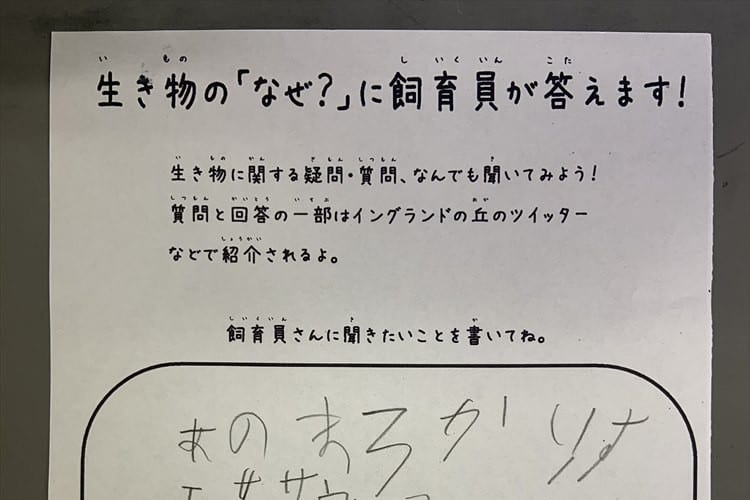 生き物の「なぜ?」に飼育員が答えます!
生き物に関する疑問・質問、なんでも聞いてみよう!
質問と回答の一部はイングランドの丘のツイッター
などで紹介されるよ。
飼育員さんに聞きたいことを書いてね。